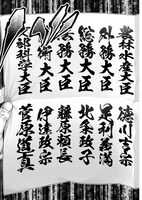 農林水産大臣 徳川吉宗
外務大臣 足利義満
総務大臣 北条政子
法務大臣 藤原頼長
衛大臣 伊達政宗
部科学大臣 菅原道真